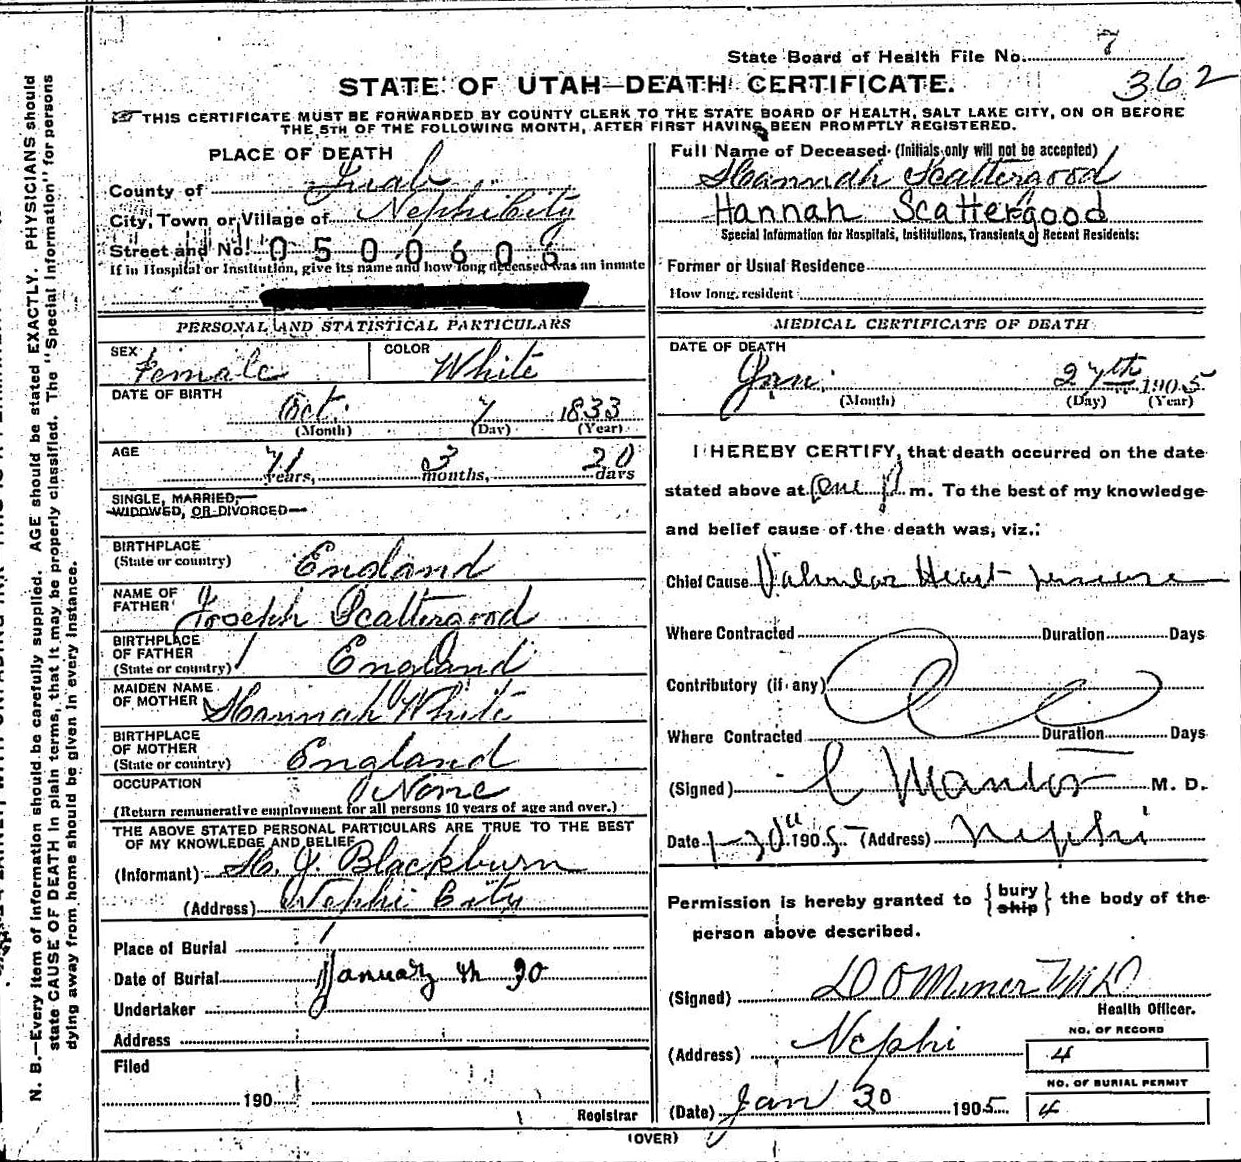 State Board of Health File No. 7
362
STATE OF UTAH—DEATH CERTIFICATE.
THIS CERTIFICATE MUST BE FORWARDED BY COUNTY CLERK TO THE STATE BOARD OF HEALTH, SALT LAKE CITY, ON OR BEFORE
THE 5TH OF THE FOLLOWING MONTH, AFTER FIRST HAVING BEEN PROMPTLY REGISTERED.
PLACE OF DEATH
County of Juab
City, Town or Village of Nephi City
Street and No. 0500606
If in Hospital or Institution, give its name and how long deceased was an inmate
PERSONAL AND STATISTICAL PARTICULARS
SEX Female
COLOR White
DATE OF BIRTH
Oct. 7 1833
(Month) (Day) (Year)
AGE
71 years, 3 months, 20 days
SINGLE, MARRIED,
WIDOWED, OR DIVORCED
BIRTHPLACE
(State or country) England
NAME OF
FATHER Joseph Scattergood
BIRTHPLACE
OF FATHER
(State or country) England
MAIDEN NAME
OF MOTHER Hannah White
BIRTHPLACE
OF MOTHER
(State or country) England
OCCUPATION None
(Return remunerative employment for all persons 10 years of age and over.)
THE ABOVE STATED PERSONAL PARTICULARS ARE TRUE TO THE BEST
OF MY KNOWLEDGE AND BELIEF
(Informant) H. J. Blackburn
(Address) Nephi City
Place of Burial
Date of Burial January th 30
Undertaker
Address
Filed
190
Registrar
Full Name of Deceased (Initials only will not be accepted)
Hannah Scattergood
Hannah Scattergood
Special Information for Hospitals, Institutions, Transients or Recent Residents:
Former or Usual Residence
How long resident
MEDICAL CERTIFICATE OF DEATH
DATE OF DEATH
Jan. 27th 1905
(Month) (Day) (Year)
I HEREBY CERTIFY, that death occurred on the date
stated above at One P m. To the best of my knowledge
and belief cause of the death was, viz.:
Chief Cause Valvular Heart
Where Contracted Duration Days
Contributory (if any)
Where Contracted Duration Days
(Signed) M. D.
Date 1-30th 1905 (Address) Nephi
Permission is hereby granted to { bury ship } the body of the
person above described.
(Signed) D O Miner M D
Health Officer.
(Address) Nephi
NO. OF RECORD
4
NO. OF BURIAL PERMIT
4
(Date) Jan 30 1905
(OVER)
N. B.—Every item of information should be carefully supplied. AGE should be stated EXACTLY. PHYSICIANS should
state CAUSE OF DEATH in plain terms, that it may be properly classified. The "Special Information" for persons
dying away from home should be given in every instance.